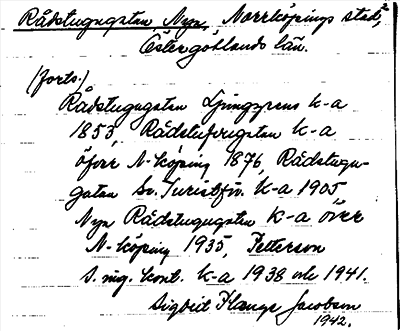 Rådstugugatan, Nya, Norrköpings stad, 2
Östergötlands län.
(forts.)
Rådstugugatan Ljunggrens k-a
1853, Rådstufvugatan k-a
öfver N-köping 1876, Rådstugu-
gatan Sv. Turistför. k-a 1905
Nya Rådstugugatan k-a över
N-köping 1935, Petterson
S. ing. kont. k-a 1938 och 1941.
Sigbrit Plange Jacobson
1942.